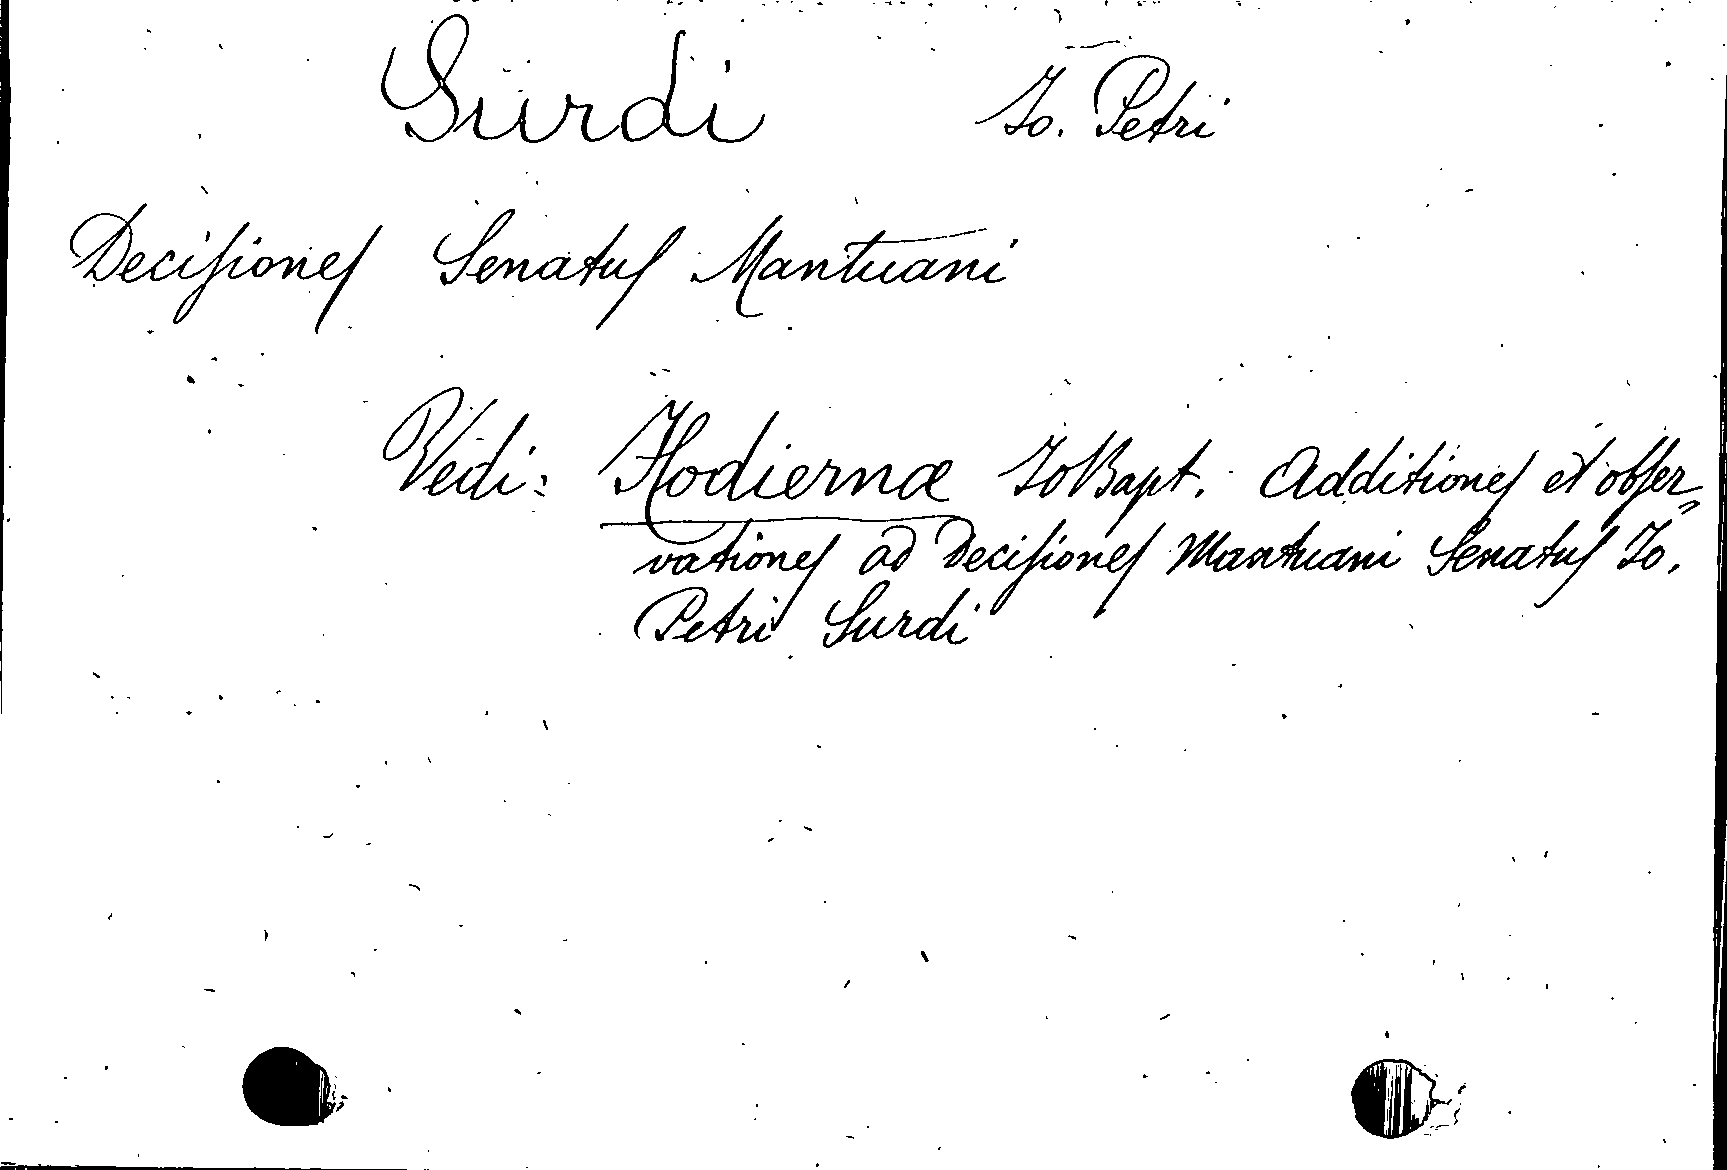 Surdi Io. Petri
Deciſioneſ Senatuſ Mantuani
Vedi: Hodiernæ IoBapt. Additioneſ et obſer-
vationeſ ad Deciſioneſ Mantuani Senatuſ Io.
Petri Surdi